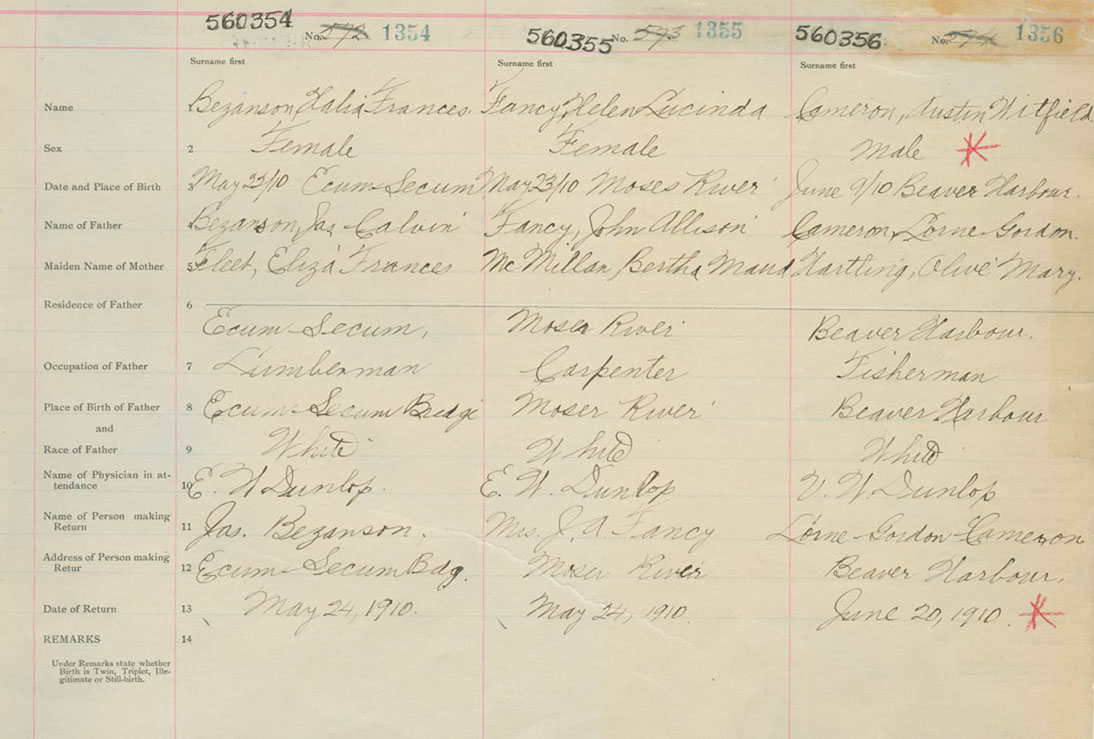 560354 No. 592 1354 560355 No. 593 1355 560356 No. 1356
Surname first Surname first Surname first
Name Bezanson, Frances. Fancy, Helen Lucinda Cameron, Austin Witfield.
Sex 2 Female Female Male
Date and Place of Birth 3 May 22/10 Ecum-Secum May 23/10 Moses River June 9/10 Beaver Harbour.
Name of Father Bezanson, Jas Calvin Fancy, John Allison Cameron, Lorne Gordon.
Maiden Name of Mother 5 Fleet, Eliza Frances McMillan, Bertha Maud Hartling, Olive Mary.
Residence of Father 6
Ecum-Secum, Moser River Beaver Harbour.
Occupation of Father 7 Lumberman Carpenter Fisherman
Place of Birth of Father 8 Ecum-Secum Bridge Moser River Beaver Harbour
and
Race of Father 9 White White White
Name of Physician in at-
tendance 10 E. W Dunlop. E. W. Dunlop V. W Dunlop
Name of Person making
Return 11 Jas. Bezanson. Mrs. J. A. Fancy Lorne Gordon Cameron
Address of Person making
Retur 12 Ecum-Secum Bdg. Moser River Beaver Harbour.
Date of Return 13 May 24, 1910. May 24, 1910. June 20, 1910.
REMARKS 14
Under Remarks state whether
Birth is Twin, Triplet, Ille-
gitimate or Still-birth.